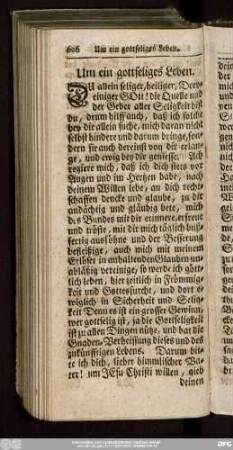 606 Um ein gottseliges Leben.
Um ein gottseliges Leben.
DU allein seliger, heiliger, Drey-
einiger GOtt! die Quelle und
der Geber aller Seligkeit bist
du, denn hilff auch, daß ich solche
bey dir allein suche, mich daran nicht
selbst hindere und darum bringe, son-
dern sie auch dereinst von dir erlan-
ge, und ewig bey dir geniesse. Ach
regiere mich, daß ich dich stets vor
Augen und im Hertzen habe, nach
deinem Willen lebe, an dich recht-
schaffen dencke und glaube, zu dir
andächtig und gläubig bete, mich
des Bundes mit dir erinnere, erfreue
und tröste, mit dir mich täglich buß-
fertig aussöhne und der Besserung
befleißige, auch mich mit meinem
Erlöser in anhaltenden Glauben un-
abläßig vereinige, so werde ich gött-
lich leben, hier zeitlich in Frömmig-
keit und Gottesfurcht, und dort e-
wiglich in Sicherheit und Selig-
keit Denn es ist ein grosser Gewinn,
wer gottselig ist, ja die Gottseligkeit
ist zu allen Dingen nütze, und hat die
Gnaden-Verheissung dieses und des
zukünfftigen Lebens. Darum bit-
te ich dich, lieber himmlischer Va-
ter! um JEsu Christi willen, gieb
deinen